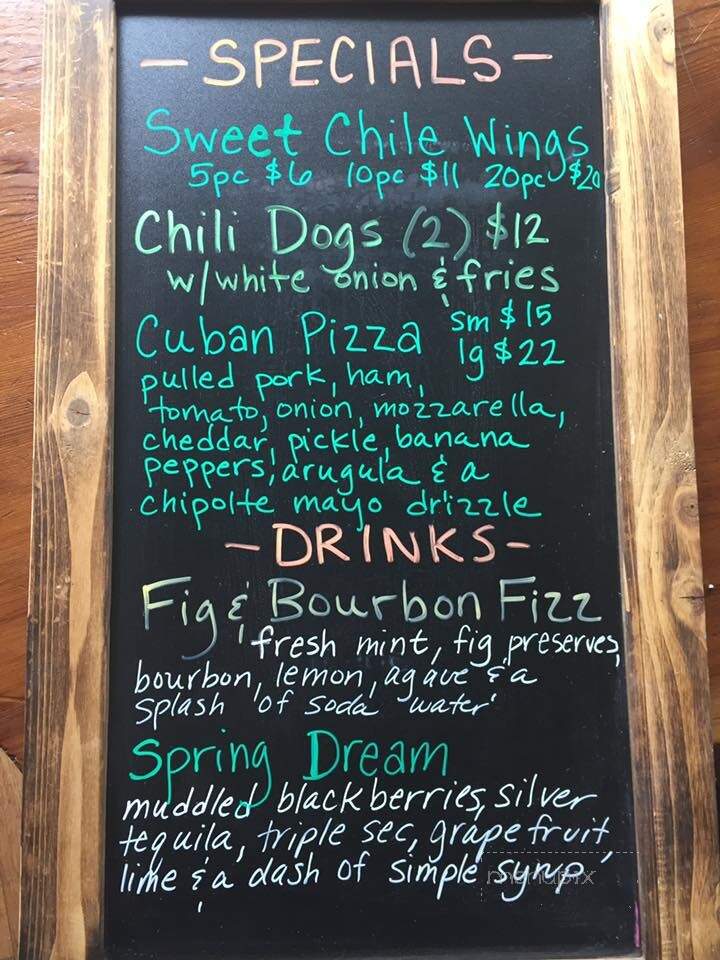 - SPECIALS -
Sweet Chile Wings
5pc $6 10pc $11 20pc $20
Chili Dogs (2) $12
w/white onion & fries
Cuban Pizza sm $15
lg $22
pulled pork, ham,
tomato, onion, mozzarella,
cheddar, pickle, banana
peppers, arugula & a
chipolte mayo drizzle
- DRINKS -
Fig & Bourbon Fizz
fresh mint, fig preserves,
bourbon, lemon, agave & a
splash of soda water
Spring Dream
muddled blackberries, silver
tequila, triple sec, grapefruit,
lime & a dash of simple syrup